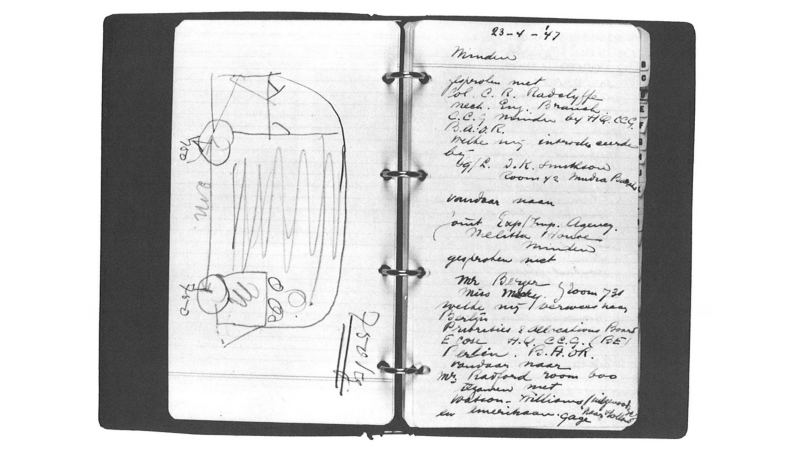 750
750
23-4-'47
Minden
gesproken met
Col. C. R. Radclyffe
Mech. Eng. Branch
C.C.G Minden by H.Q. CCG.
B.A.O.R.
welke mij introduceerde
bij
J.K. Smithson
Room 42 Mudra
vandaar naar
Joint Exp/Imp. Agency.
Melitta House
Minden
gesproken met
Mr Berger Room 730
Miss
welke mij verwees naar
Berlijn
Priorities & Allocations Board
Econ H.Q. C.C.G. (BE)
Berlin. B.A.O.R.
vandaar naar
Mr Radford room 600
samen met
Watson - Williams
en Amerikaan. Gage